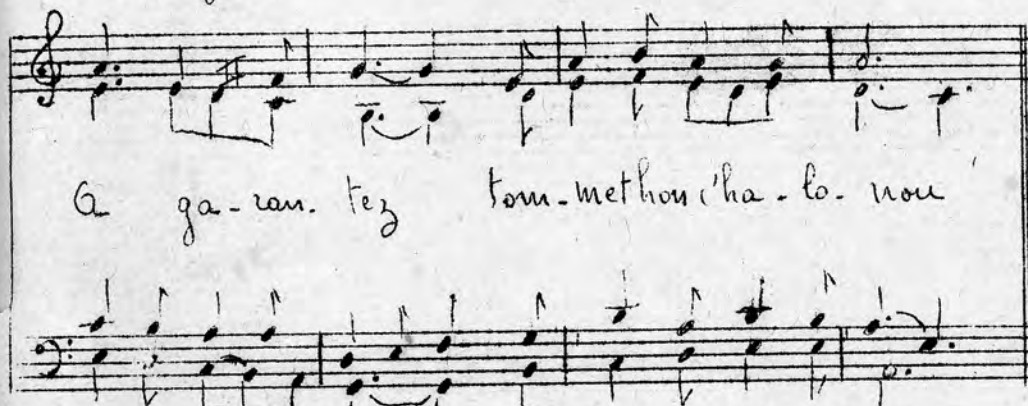 A ga-ran-tez tom-met hon c'ha-lo-nou